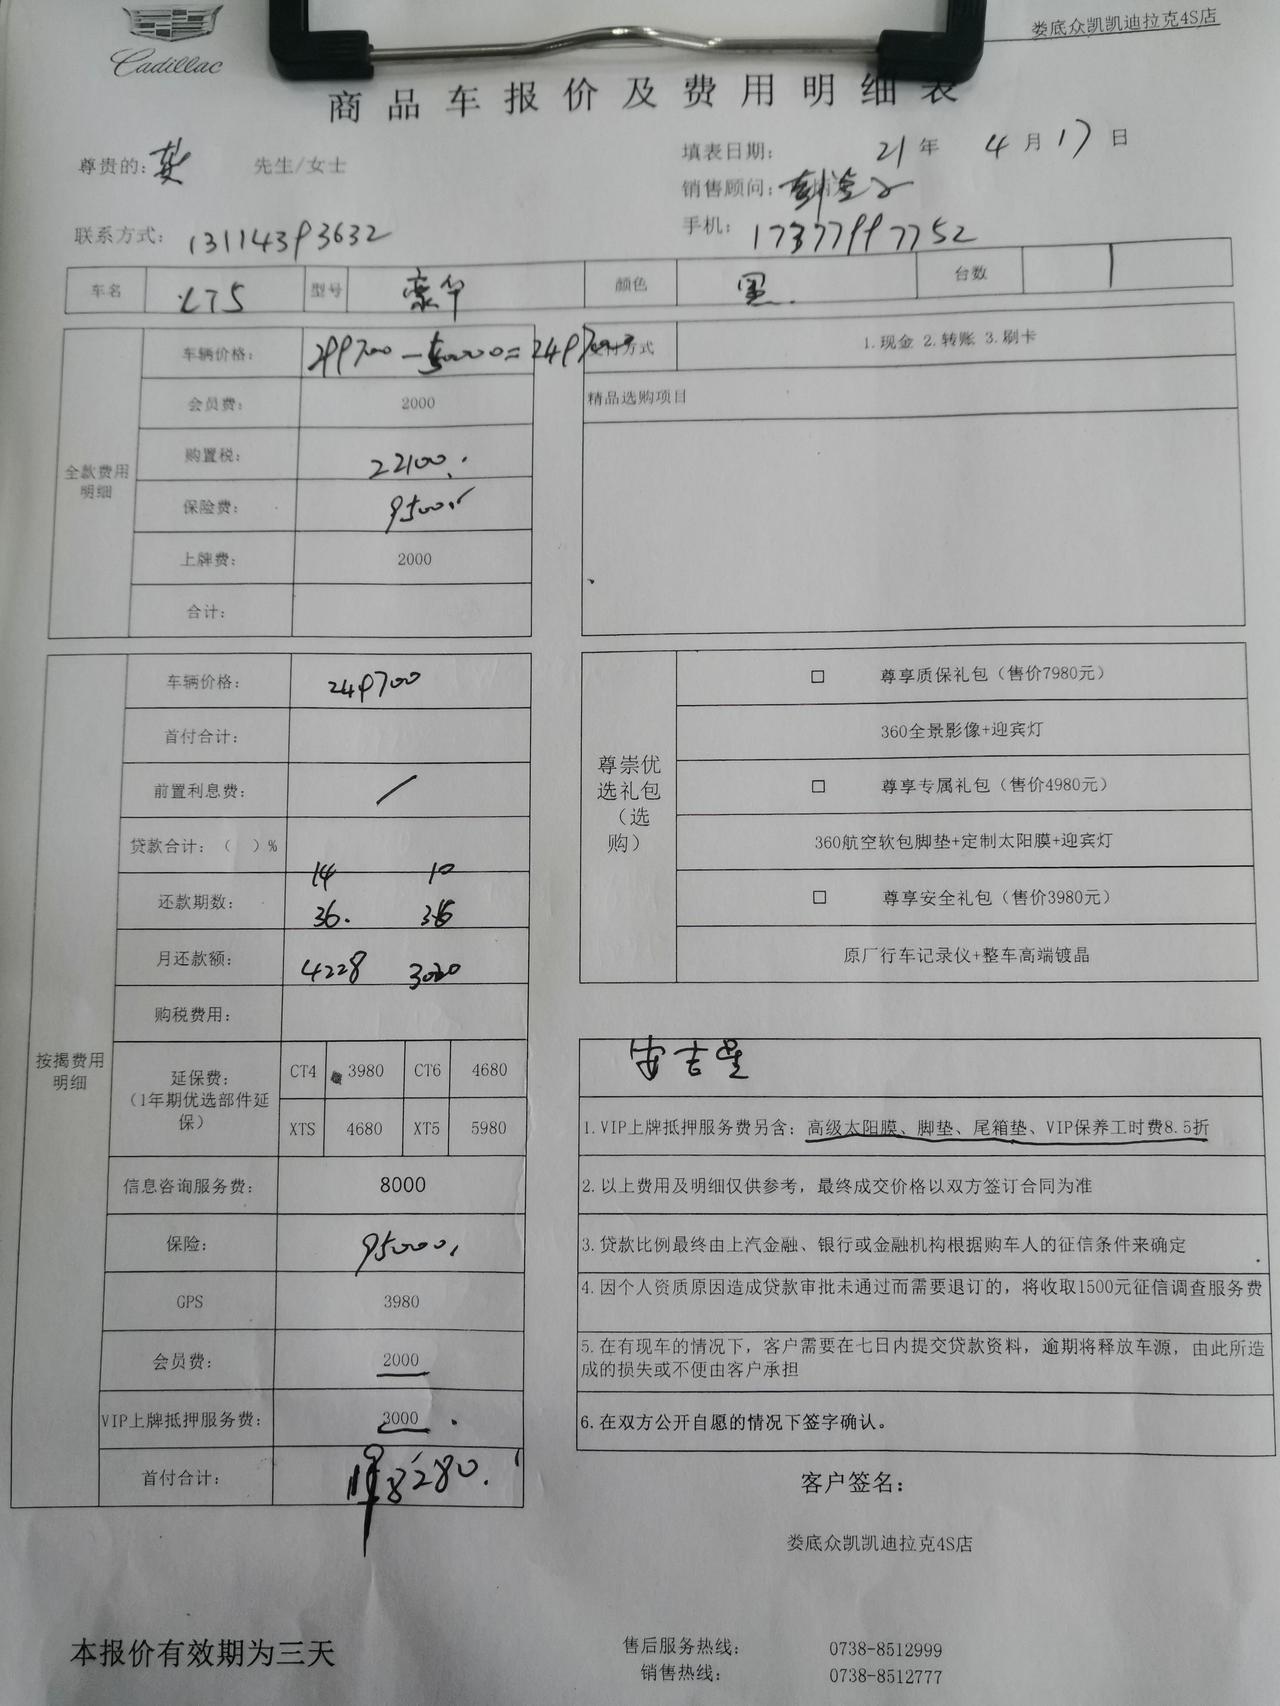 Cadillac
娄底众凯凯迪拉克4S店
商品车报价及费用明细表
尊贵的: 龚 先生/女士
填表日期: 21年 4月17日
销售顾问:
联系方式: 13114393632
手机: 17377997752
车名 型号 豪华 颜色 黑. 台数 1
全款费用明细
车辆价格: 299700-50000=249700
支付方式 1.现金 2.转账 3.刷卡
会员费: 2000
精品选购项目
购置税: 22100.
保险费: 9500.
上牌费: 2000
合计:
按揭费用明细
车辆价格: 249700
首付合计:
前置利息费: /
贷款合计: ( )%
14 10
还款期数: 36. 36
月还款额: 4228 3020
购税费用:
延保费: (1年期优选部件延保)
CT4 3980 CT6 4680
XTS 4680 XT5 5980
信息咨询服务费: 8000
保险: 95000.
GPS 3980
会员费: 2000
VIP上牌抵押服务费: 3000
首付合计:
尊崇优选礼包(选购)
□ 尊享质保礼包(售价7980元)
360全景影像+迎宾灯
□ 尊享专属礼包(售价4980元)
360航空软包脚垫+定制太阳膜+迎宾灯
□ 尊享安全礼包(售价3980元)
原厂行车记录仪+整车高端镀晶
安吉星
1.VIP上牌抵押服务费另含: 高级太阳膜、脚垫、尾箱垫、VIP保养工时费8.5折
2.以上费用及明细仅供参考, 最终成交价格以双方签订合同为准
3.贷款比例最终由上汽金融、银行或金融机构根据购车人的征信条件来确定
4.因个人资质原因造成贷款审批未通过而需要退订的, 将收取1500元征信调查服务费
5.在有现车的情况下, 客户需要在七日内提交贷款资料, 逾期将释放车源, 由此所造
成的损失或不便由客户承担
6.在双方公开自愿的情况下签字确认。
客户签名:
娄底众凯凯迪拉克4S店
本报价有效期为三天
售后服务热线: 0738-8512999
销售热线: 0738-8512777